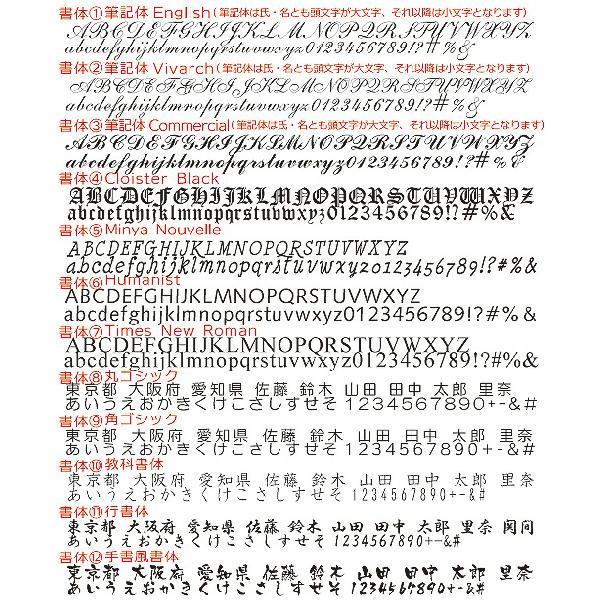 書体①筆記体English(筆記体は氏・名とも頭文字が大文字、それ以降は小文字となります)
ABCDEFGHIJKLMNOPQRSTUVWXYZ
abcdefghijklmnopqrstuvwxyz0123456789!?#%&
書体②筆記体Vivarch(筆記体は氏・名とも頭文字が大文字、それ以降は小文字となります)
ABCDEFGHIJKLMNOPQRSTUVWXYZ
abcdefghijklmnopqrstuvwxyz0123456789!?#%&
書体③筆記体Commercial(筆記体は氏・名とも頭文字が大文字、それ以降は小文字となります)
ABCDEFGHIJKLMNOPQRSTUVWXYZ
abcdefghijklmnopqrstuvwxyz0123456789!?#%&
書体④Cloister Black
ABCDEFGHIJKLMNOPQRSTUVWXYZ
abcdefghijklmnopqrstuvwxyz0123456789!?#%&
書体⑤Minya Nouvelle
ABCDEFGHIJKLMNOPQRSTUVWXYZ
abcdefghijklmnopqrstuvwxyz0123456789!?#%&
書体⑥Humanist
ABCDEFGHIJKLMNOPQRSTUVWXYZ
abcdefghijklmnopqrstuvwxyz0123456789!?#%&
書体⑦Times New Roman
ABCDEFGHIJKLMNOPQRSTUVWXYZ
abcdefghijklmnopqrstuvwxyz0123456789!?#%&
書体⑧丸ゴシック
東京都 大阪府 愛知県 佐藤 鈴木 山田 田中 太郎 里奈
あいうえおかきくけこさしすせそ1234567890+-&#
書体⑨角ゴシック
東京都 大阪府 愛知県 佐藤 鈴木 山田 田中 太郎 里奈
あいうえおかきくけこさしすせそ1234567890+-&#
書体⑩教科書体
東京都 大阪府 愛知県 佐藤 鈴木 山田 田中 太郎 里奈
あいうえおかきくけこさしすせそ1234567890+-&#
書体⑪行書体
東京都 大阪府 愛知県 佐藤 鈴木 山田 田中 太郎 里奈 関間
あいうえおかきくけこさしすせそ1234567890+-&#
書体⑫手書風書体
東京都 大阪府 愛知県 佐藤 鈴木 山田 田中 太郎 里奈
あいうえおかきくけこさしすせそ1234567890+-&#